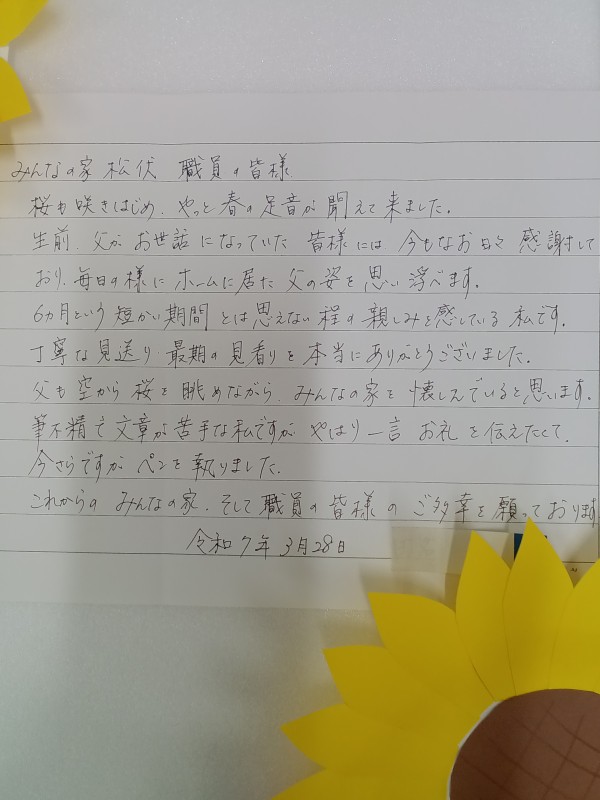 みんなの家 松伏 職員の皆様
桜も咲きはじめ、やっと春の足音が聞えて来ました。
生前、父がお世話になっていた 皆様には 今もなお日々 感謝して
おり、毎日の様に ホームに居た 父の姿を 思い浮べます。
6カ月という 短かい期間 とは思えない 程の 親しみを感じている 私です。
丁寧な見送り、最期の見看りを 本当にありがとうございました。
父も空から 桜を眺めながら、みんなの家を 懐しんでいると思います。
筆不精で 文章が 苦手な私ですが やはり一言 お礼を伝えたくて、
今さらですが ペンを執りました。
これからの みんなの家、そして職員の 皆様の ご多幸を願っております
令和7年 3月28日